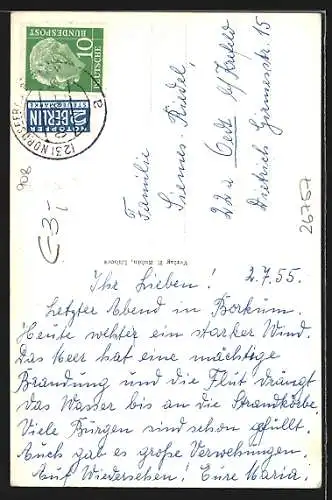 10
DEUTSCHE
BUNDESPOST
2 NOTOPFER
BERLIN
STEUERMARKE
(23) NORDSEEB
a
908
Familie
Siemes-Riedel,
22a Oedt b/Krefeld
Dietrich Girmesstr. 15
26757
Verlag E. Rubin, Lübeck
Ihr Lieben! 2.7.55.
Letzter Abend in Borkum.
Heute wehter ein starker Wind.
Das Meer hat eine mächtige
Brandung und die Flut drängt
das Wasser bis an die Strandkörbe.
Viele Burgen sind schon gefüllt.
Auch gab es große Verwehungen.
Auf Wiedersehen! Eure Maria!